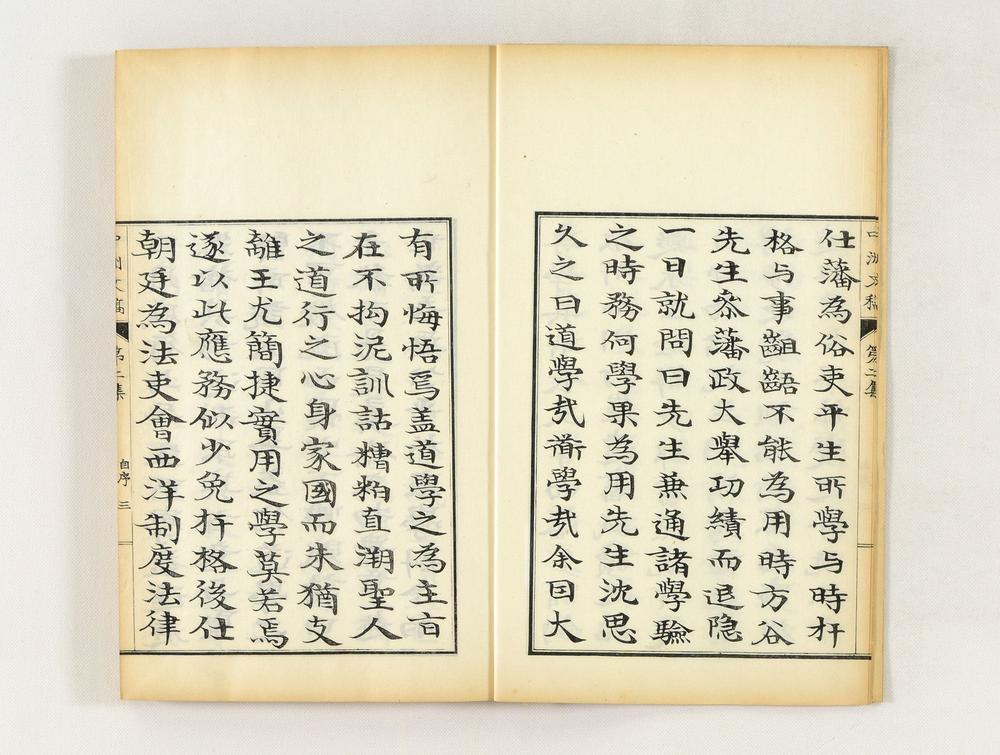 仕藩為俗吏平生所學与時扞
格与事齟齬不能為用時方谷
先生參藩政大舉功績而退隐
一日就問曰先生兼通諸學驗
之時務何學果為用先生沈思
久之曰道學㢤衜學㢤余因大
第二集
有所悔悟焉盖道學之為主旨
在不拘泥訓詁糟粕直溯聖人
之道行之心身家國而朱猶支
離王尤簡捷實用之學莫若焉
遂以此應務似少免扞格後仕
朝廷為法吏會西洋制度法律
自序 三